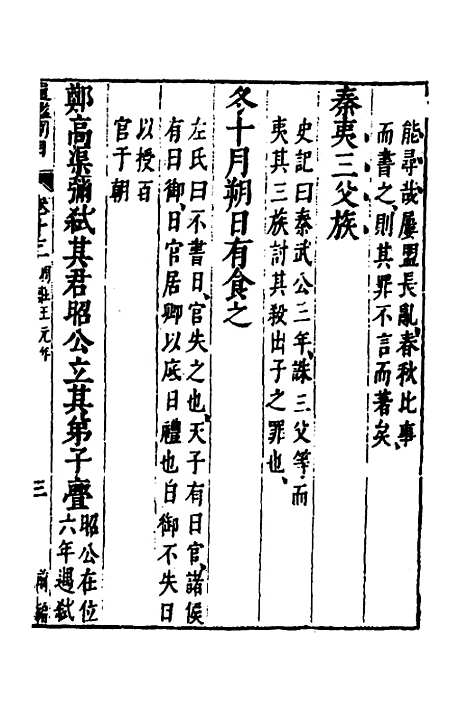 能尋哉屢盟長亂春秋比事
而書之則其罪不言而著矣
秦夷三父族
史記曰秦武公三年誅三父等而
夷其三族討其殺出子之罪也
冬十月朔日有食之
左氏曰不書日官失之也天子有日官諸侯
有日御日官居卿以底日禮也日御不失日
以授百
官于朝
鄭高渠彌弒其君昭公立其弟子亹
昭公在位
六年遇弒
卷十二
周莊王元年
三
前編